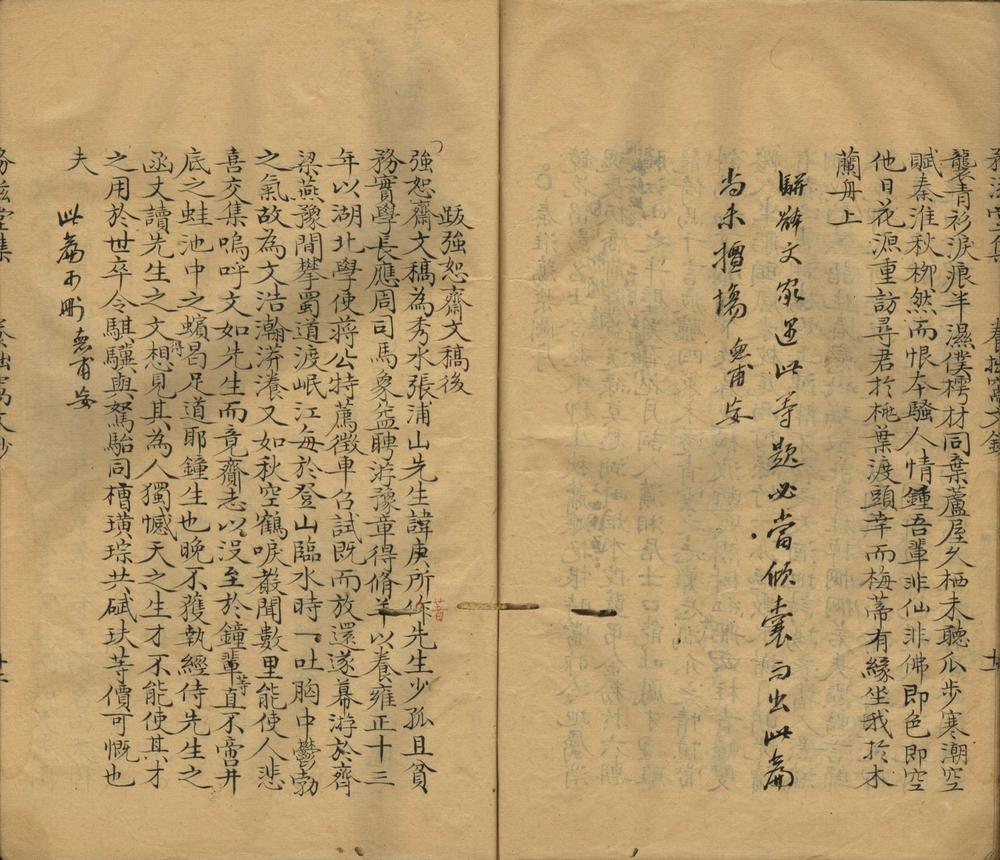 襲青衫淚痕半濕僕樗材同棄蘆屋久栖未聽瓜步寒潮空
賦秦淮秋柳然而恨本騷人情鍾吾輩非仙非佛即色即空
他日花源重訪尋君於桃葉渡頭幸而梅蒂有緣坐我於木
蘭舟上
駢體文家遇此等題必當傾囊而出此篇
尚未擅場
跋強恕齋文稿後
強恕齋文稿為秀水張浦山先生諱庚所作著先生少孤且貧
務實學長應周司馬象益聘游豫章得脩羊以養雍正十三
年以湖北學使蔣公特薦徵車召試既而放還遂幕游於齊
梁燕豫閒攀蜀道渡岷江每於登山臨水時一吐胸中鬱勃
之氣故為文浩瀚漭瀁又如秋空鶴唳嚴聞數里能使人悲
喜交集嗚呼文如先生而竟齎志以沒至於鐘輩等直不啻井
底之蛙池中之蠙曷足道耶鐘生也晚不獲執經侍先生之
函丈讀先生之文想得見其為人獨憾天之生才不能使其才
之用於世卒令騏驥與駑駘同槽璜琮共碔砆等價可慨也
夫
此篇可刪